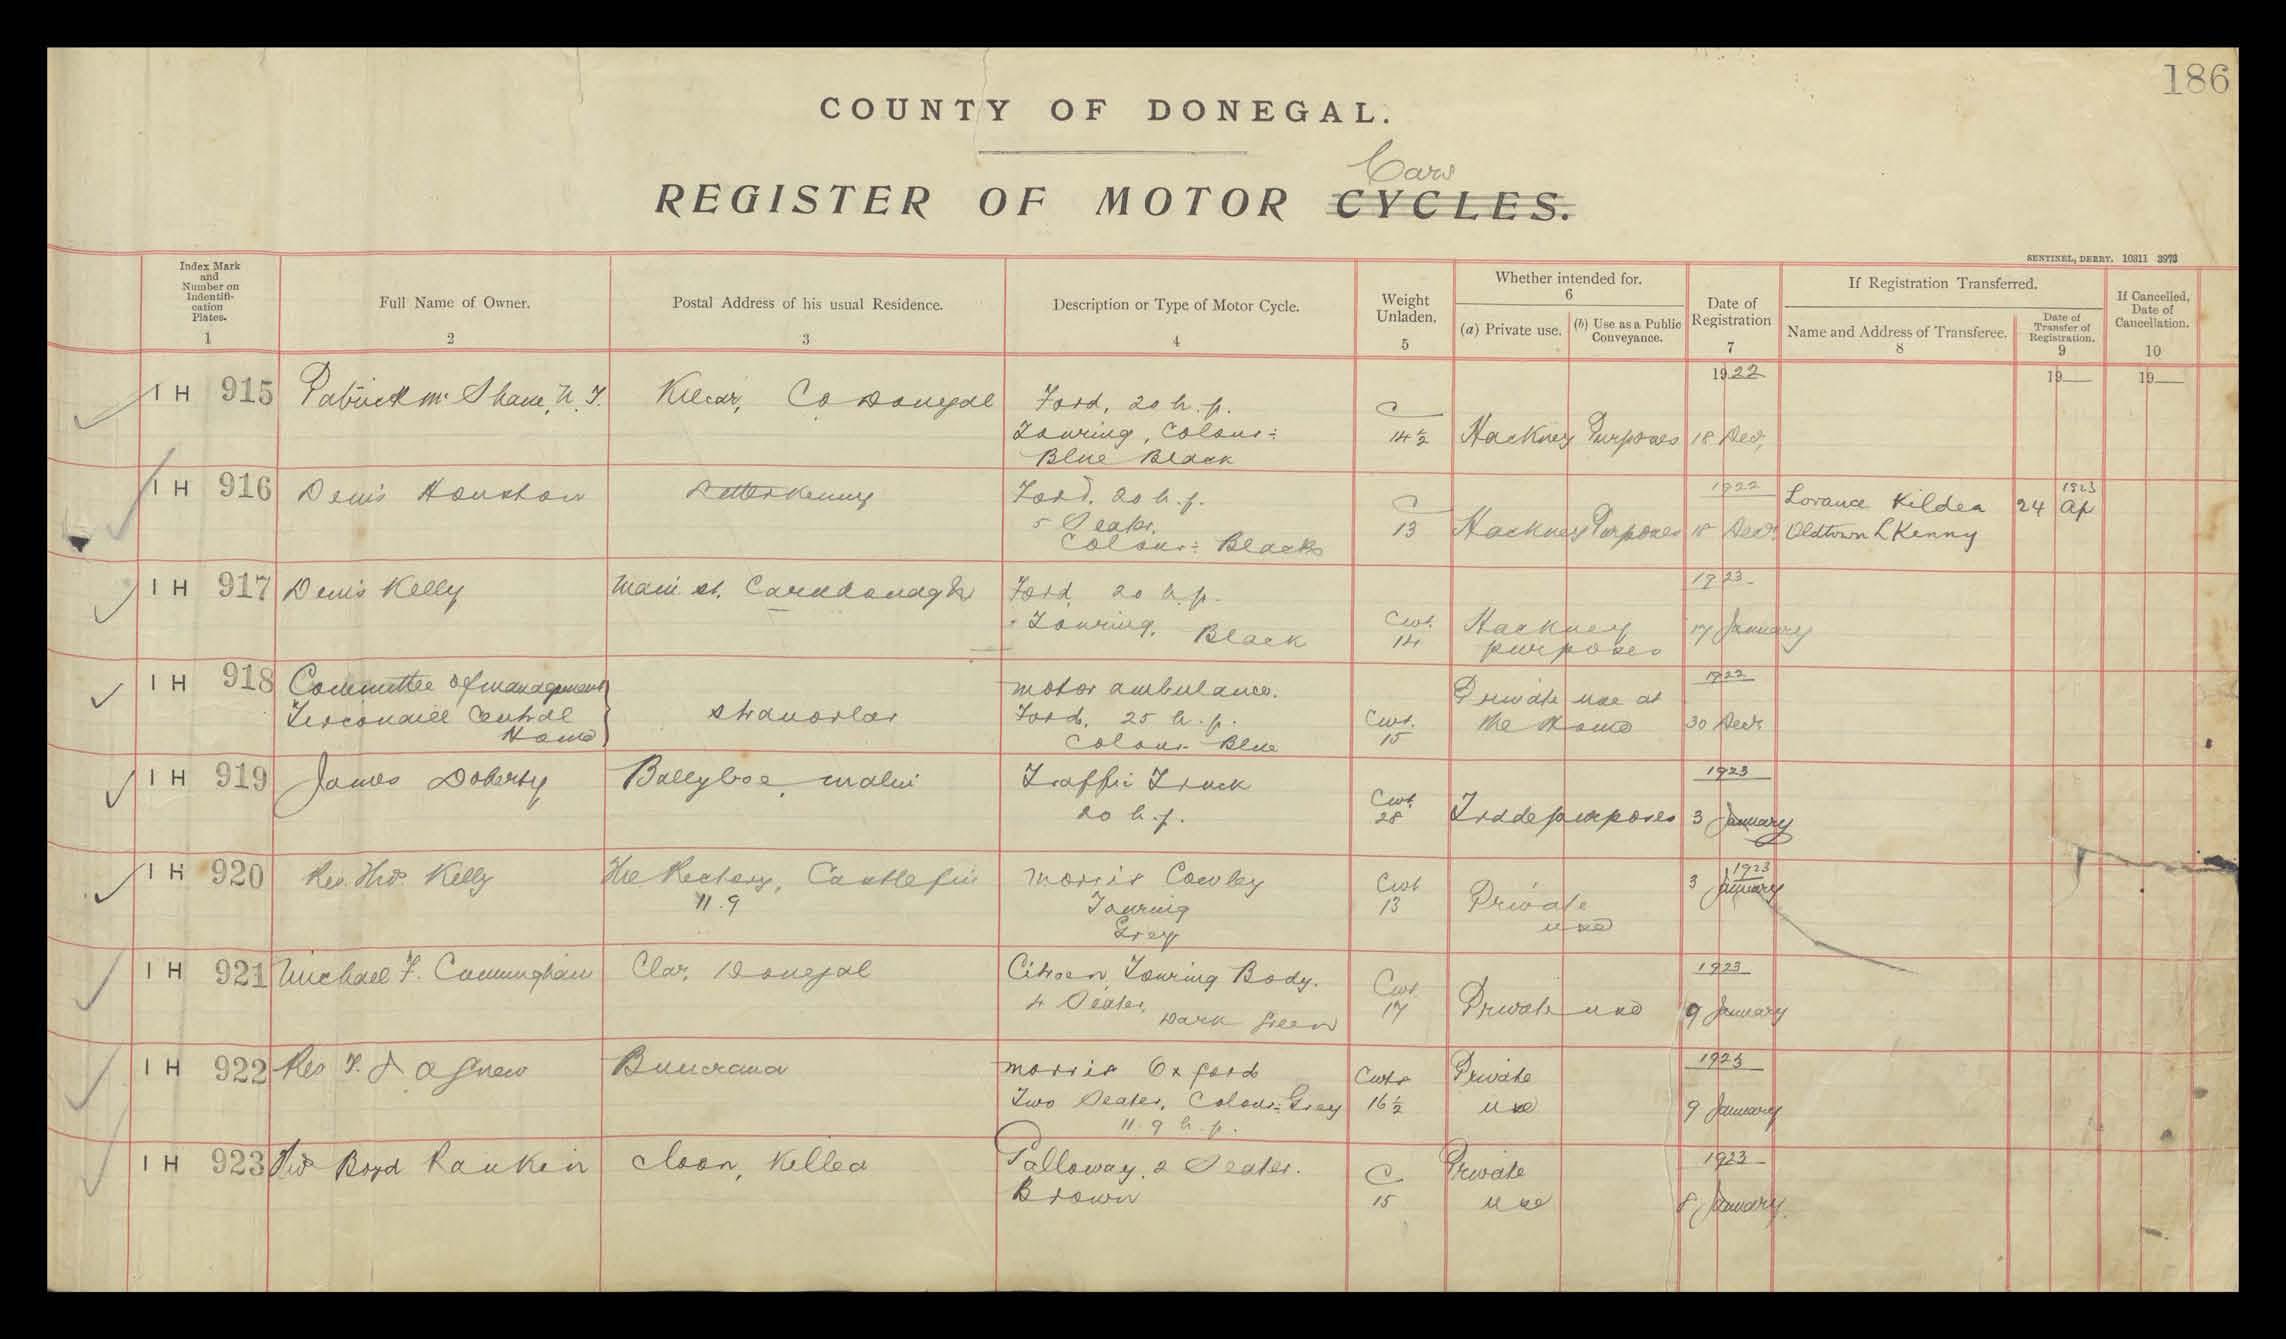 186
COUNTY OF DONEGAL.
Cars
REGISTER OF MOTOR CYCLES.
SENTINEL, DERRY. 10311 3973
Index Mark and Number on Indentifi- cation Plates. 1
Full Name of Owner. 2
Postal Address of his usual Residence. 3
Description or Type of Motor Cycle. 4
Weight Unladen. 5
Whether intended for. 6
(a) Private use.
(b) Use as a Public Conveyance.
Date of Registration 7
If Registration Transferred.
Name and Address of Transferee. 8
Date of Transfer of Registration. 9
If Cancelled, Date of Cancellation. 10
1922
19
19
IH 915 Patrick Mc Shane, N.T. Kilcar, Co Donegal Ford, 20 h.p.
Touring, Colour:
Blue Black
C
14½ Hackney Purposes 18 Dec.
IH 916 Denis Houston Letterkenny Ford. 20 h.p.
5 Seater.
Colour: Black
C
13 Hackney Purposes
1922
18 Decr
Lorance Kildea
Oldtown L Kenny
24 1923 Ap
IH 917 Denis Kelly Main St. Carndonagh Ford 20 h.p.
Touring. Black
Cwt.
14 Hackney
purposes
1923
17 January
IH 918 Committee of management
Tirconaill Central
Home
Stranorlar
motor ambulance.
Ford. 25 h.p.
Colour Blue
Cwt.
15
Private use at
the Home
1922
30 Decr
IH 919 James Doherty Ballyboe, Malin Traffic Truck
20 h.p.
Cwt.
28 Trade purposes
1923
3 January
IH 920 Rev. Thos. Kelly The Rectory, Castlefin
11.9
Morris Cowley
Touring
Grey
Cwt
13 Private
use
1923
3 January
IH 921 Michael F. Cunningham Clar, Donegal Citroen, Touring Body.
4 Seater.
Dark Green
Cwt.
17 Private use
1923
9 January
IH 922 Rev F. J Agnew Buncrana Morris Oxford
Two Seater, Colour: Grey
11.9 h.p.
Cwts
16½ Private
use
1923
9 January
IH 923 Thos Boyd Rankin Cloon, Killea Galloway, 2 Seater.
Brown
C
15 Private
use
1923
8 January